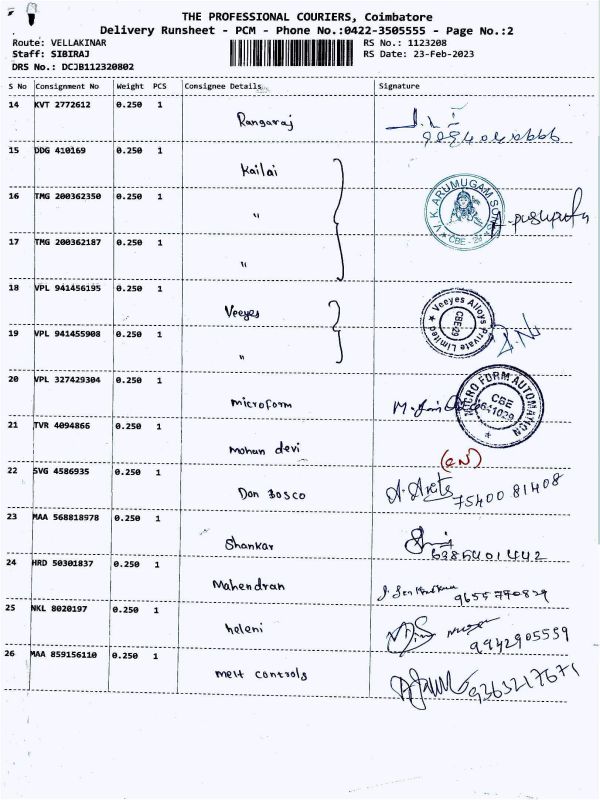 THE PROFESSIONAL COURIERS, Coimbatore
Delivery Runsheet - PCM - Phone No.:0422-3505555 - Page No.:2
Route: VELLAKINAR
RS No.: 1123208
Staff: SIBIRAJ
RS Date: 23-Feb-2023
DRS No.: DCJB112320802
S No Consignment No Weight PCS Consignee Details Signature
14 KVT 2772612 0.250 1 Rangaraj
15 DDG 410169 0.250 1 Kailai
16 TMG 200362350 0.250 1 "
V.K. ARUMUGAM SONS
CBE - 29
17 TMG 200362187 0.250 1 "
18 VPL 941456195 0.250 1 Veeyes
Veeyes Alloys Private Limited
CBE-29
19 VPL 941455908 0.250 1 "
20 VPL 327429304 0.250 1 microform
MICRO FORM AUTOMATION
CBE
641029
21 TVR 4094866 0.250 1 mohan devi
22 SVG 4586935 0.250 1 Don Bosco
75400 81408
23 MAA 568818978 0.250 1 Shankar
6385401442
24 HRD 50301837 0.250 1 Mahendran
9655790829
25 NKL 8020197 0.250 1 heleni
9942905559
26 MAA 859156110 0.250 1 melt controls